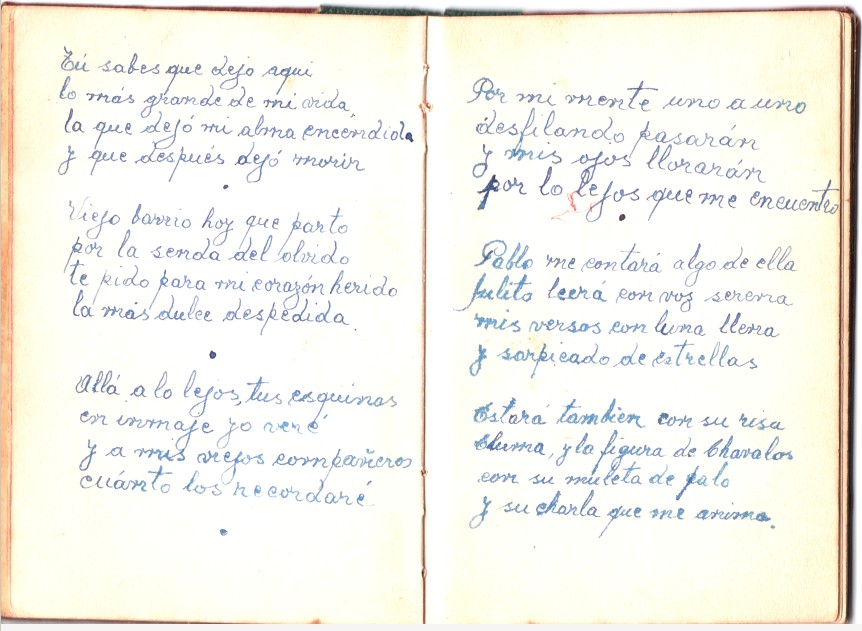 Tú sabes que dejo aqui
lo más grande de mi vida
la que dejó mi alma encéndida
y que después dejó morir
Viejo barrio hoy que parto
por la senda del olvido
te pido para mi corazón herido
la más dulce despedida.
Allá a lo lejos, tus esquinas
en inmaje yo veré
y a mis viejos compañeros
cuánto los recordaré
Por mi mente uno a uno
desfilando pasarán
y mis ojos llorarán
por lo lejos que me encuentro
Pablo me contará algo de ella
Julito leerá con voz serena
mis versos con luna llena
y sarpicado de estrellas
Estará tambien con su risa
Chuma, y la figura de Chavalos
con su muleta de palo
y su charla que me anima.